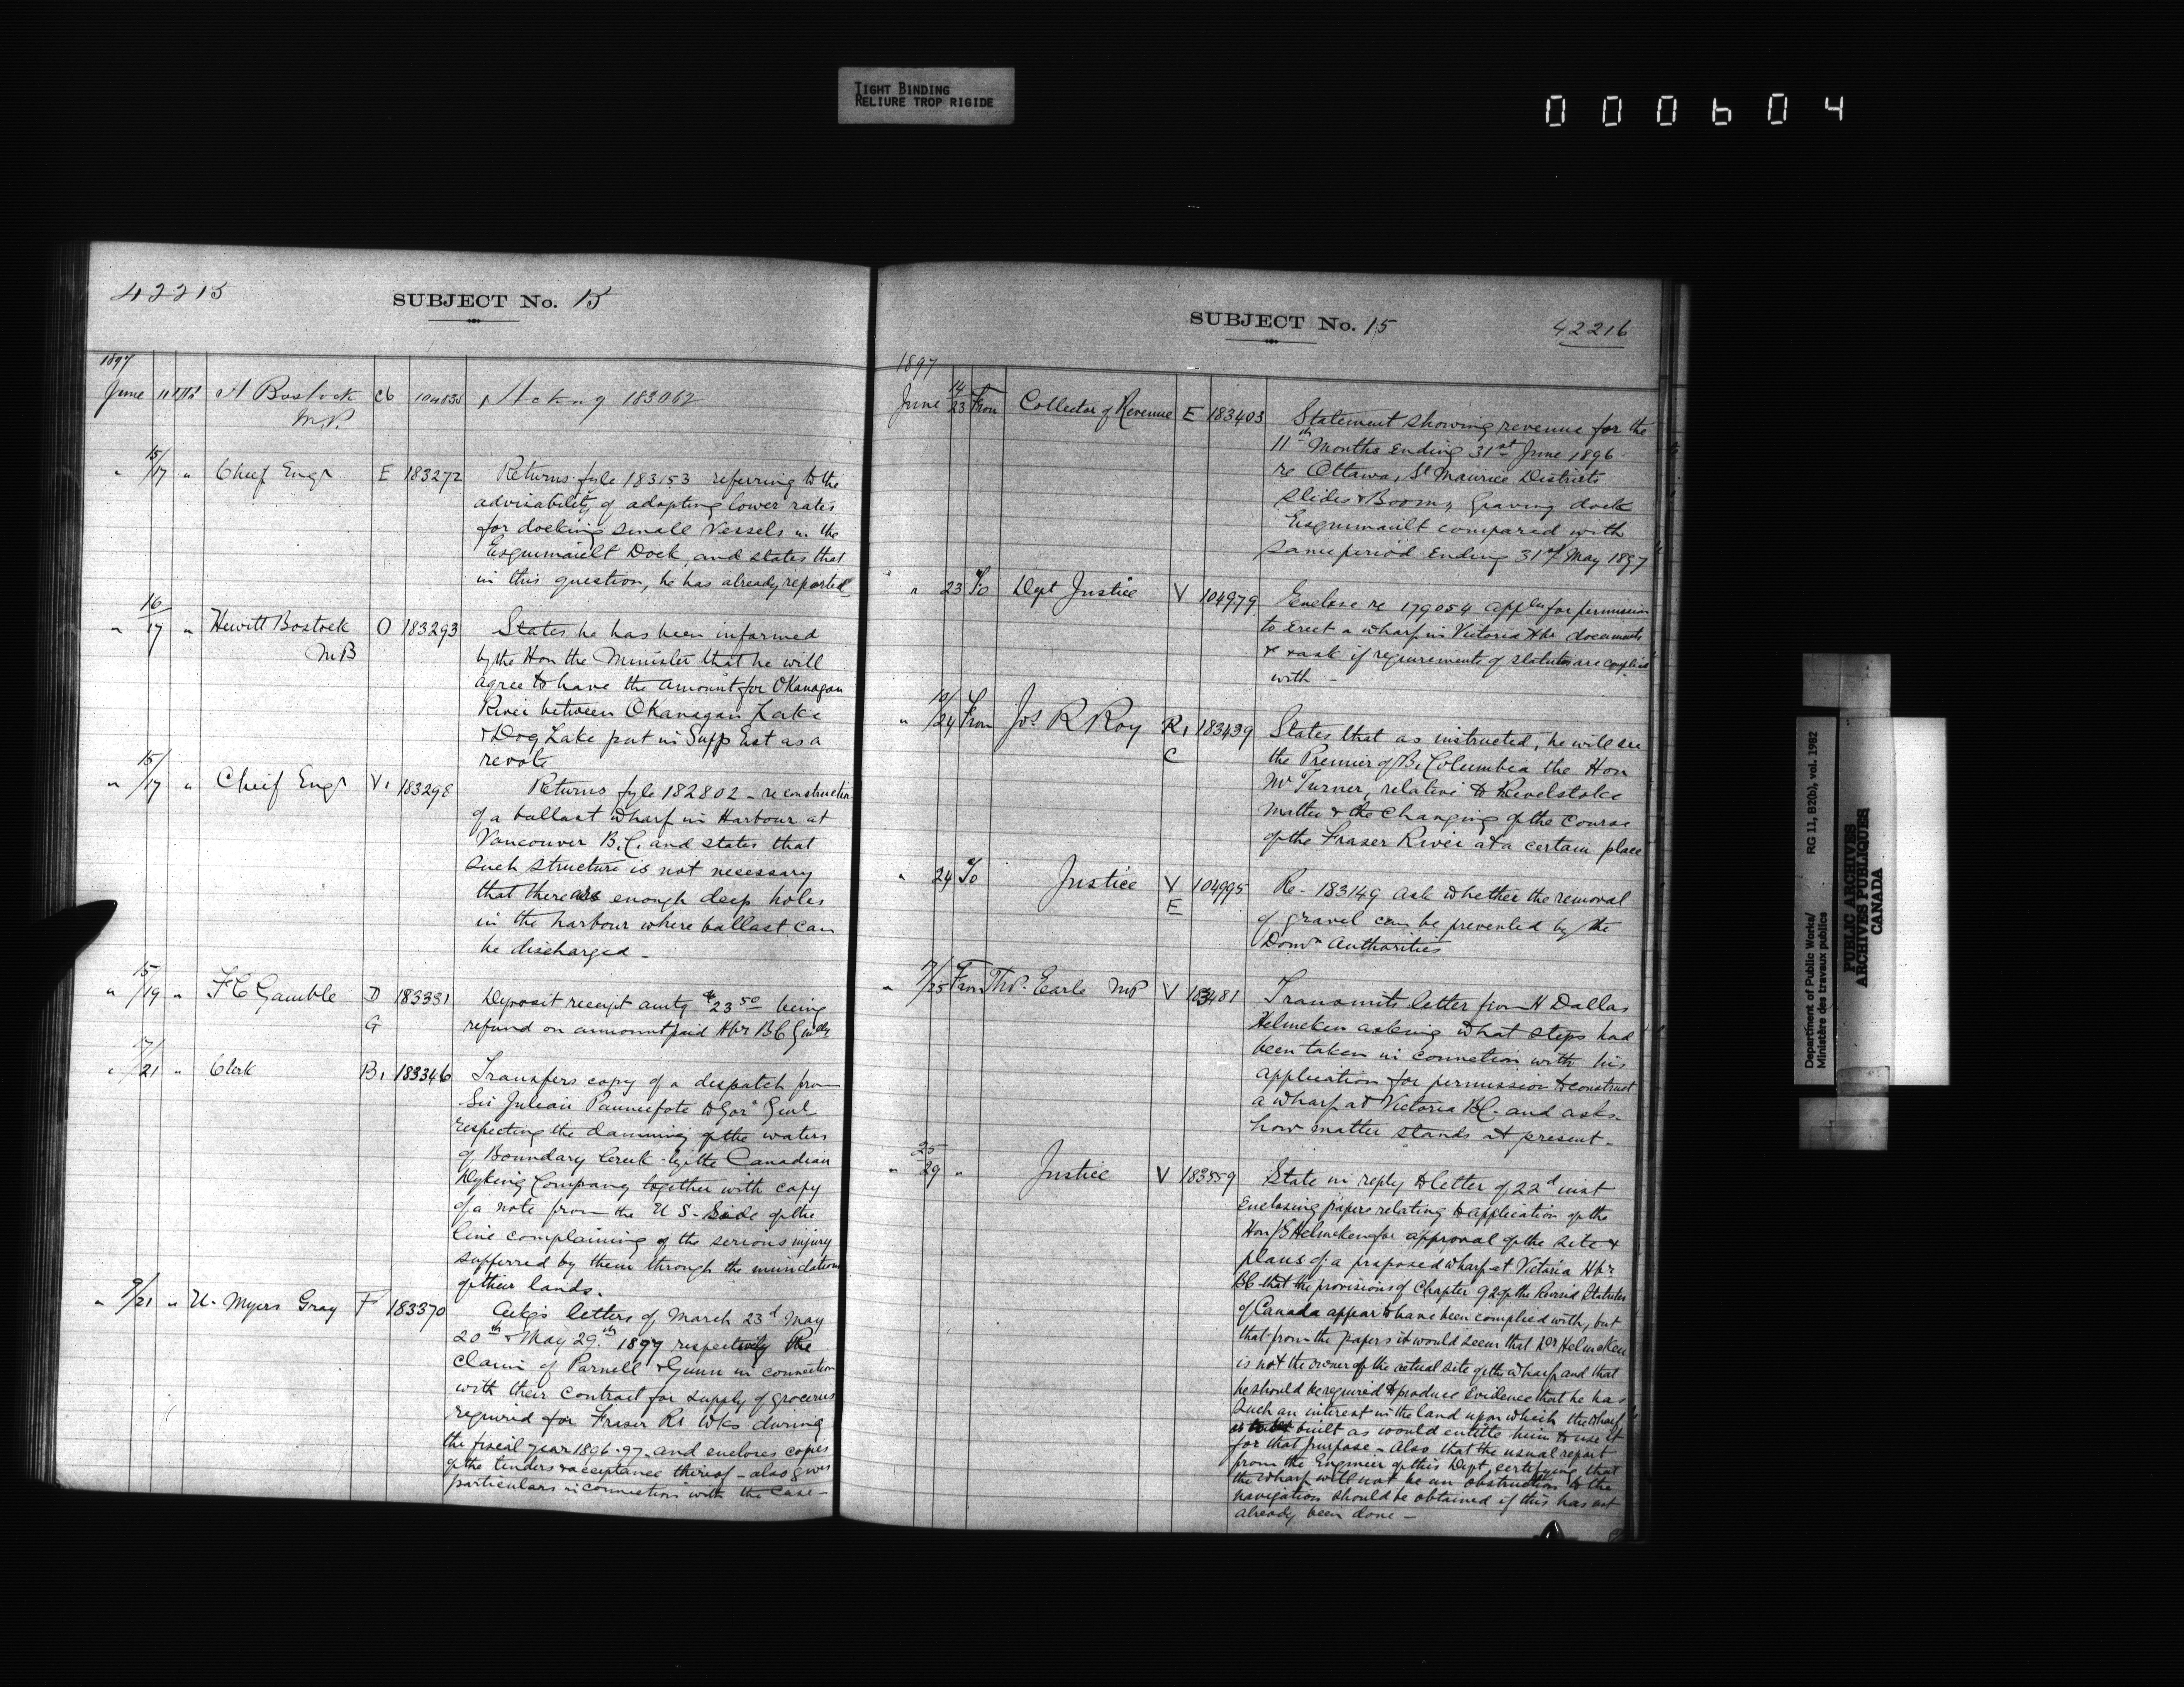 TIGHT BINDING
RELIURE TROP RIGIDE
000604
42215
SUBJECT No. 15
1897
June 11 H Bostock C6 104835 Ackng 183062
M.P.
" 15/17 " Chief Engr E 183272 Returns fyle 183153 referring to the
advisability of adopting lower rates
for docking small Vessels in the
Esquimault Dock, and states that
in this question, he has already reported
" 16/17 " Hewitt Bostock O 183293 States he has been informed
MB by the Hon the Minister that he will
agree to have the amount for OKanagan
River between OKanagan Lake
& Dog Lake put in Supp Est as a
revote
" 15/17 " Chief Engr V1 183298 Returns fyle 182802 - reconstruction
of a ballast wharf in Harbour at
Vancouver B.C. and states that
such structure is not necessary
that there are enough deep holes
in the harbour where ballast can
be discharged -
" 15/19 " F C Gamble D 183331 Deposit receipt amtg $23 50 being
G refund on amount paid Hbr BC
" 17/21 " Clerk B1 183346 Transfers copy of a despatch from
Sir Julian Pauncefote to Govr Genl
respecting the damming of the waters
of Boundary Creek - by the Canadian
Dyking Company together with copy
of a note from the U S - Side of the
line complaining of the serious injury
sufferred by them through the inundation
of their lands.
" 9/21 " U. Myers Gray F 183370 Ackgs letters of March 23d May
20th & May 29th 1897 respectively Re
claim of Parnell & Gunn in connection
with their contract for supply of groceries
required for Fraser Rr Wks during
the fiscal year 1896-97 - and encloses copies
of the tenders & acceptance thereof - also gives
particulars in connection with the case -
SUBJECT No. 15
42216
1897
June 14/23 From Collector of Revenue E 183403 Statement showing revenue for the
11th Months Ending 31st June 1896
re Ottawa, St Maurice Districts
Slides & Booms, Graving dock
Esquimault compared with
same period Ending 31st May 1897
" 23 To Dept Justice V 104979 Enclose re 179054 appln for permission
to Erect a wharf in Victoria Hbr documents
& ask if requirements of statutes are complied
with -
" 19/24 From Jos R Roy R1 183439 States that as instructed, he will see
C the Premier of B. Columbia the Hon
Mr Turner, relative to Revelstoke
matter & the changing of the course
of the Fraser River at a certain place
" 24 To Justice V 104995 Re - 183149 ask whether the removal
E of gravel can be prevented by the
Domn Authorities
" 17/25 From Tho. Earle MP V 183481 Transmits letter from H Dallas
Helmcken asking what steps had
been taken in connection with his
application for permission to construct
a wharf at Victoria BC - and asks
how matter stands at present -
" 25/29 " Justice V 183559 State in reply to letter of 22d inst
Enclosing papers relating to application of the
Hon Helmcken for approval of the site &
plans of a proposed wharf at Victoria Hbr
BC - that the provisions of Chapter 92 of the Revised Statutes
of Canada appear to have been complied with, but
that from the papers it would seem that Dr Helmcken
is not the owner of the actual site of the wharf and that
he should be required to produce Evidence that he has
such an interest in the land upon which the wharf
is to be built as would entitle him to use it
for that purpose - also that the usual report
from the Engineer of this Dept certifying that
the wharf will not be an obstruction to the
navigation should be obtained if this has not
already been done -
Department of Public Works/
Ministère des travaux publics
RG 11, B2(b), vol. 1982
PUBLIC ARCHIVES
ARCHIVES PUBLIQUES
CANADA